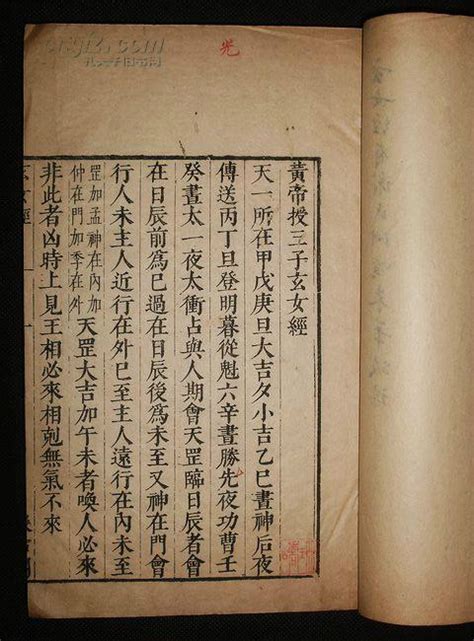 黃帝授三子玄女經
天一所在甲戊庚旦大吉夕小吉乙巳晝神后夜
傳送丙丁旦登明暮從魁六辛晝勝先夜功曹壬
癸晝太一夜太衝占與人期會天罡臨日辰者會
在日辰前爲巳過在日辰後爲未至又神在門會
行人未主人近行在外巳至主人遠行在內未至
罡加孟神在內加
仲在門加季在外
天罡大吉加午未者喚人必來
非此者凶時上見王相必來相剋無氣不來
玄女經
一
光